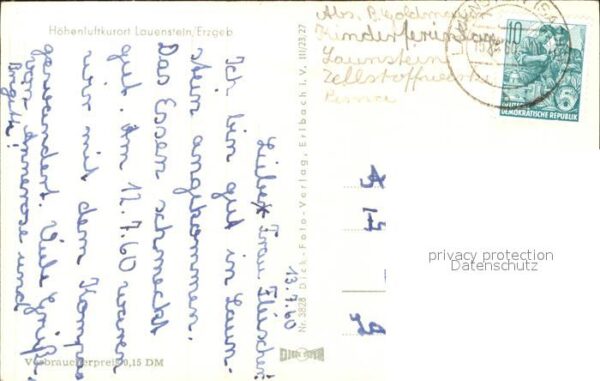 Höhenluftkurort Lauenstein, Erzgeb
13.7.60
Liebe Frau Fleischer!
Ich bin gut in Lauen-
stein angekommen.
Das Essen schmeckt
gut. Am 12.7.60 waren
wir mit dem Kompaß
gewandert. Viele Grüße
von Annerose und
Brigitte!
Verbraucherpreis 0,15 DM
Nr. 3828 Dick-Foto-Verlag, Erlbach i. V. III/23/27
Abs. B. Goldmann
Kinderferienlager
Lauenstein
Zellstoffwerk
Pirna
10
DEUTSCHE
DEMOKRATISCHE REPUBLIK
privacy protection
Datenschutz